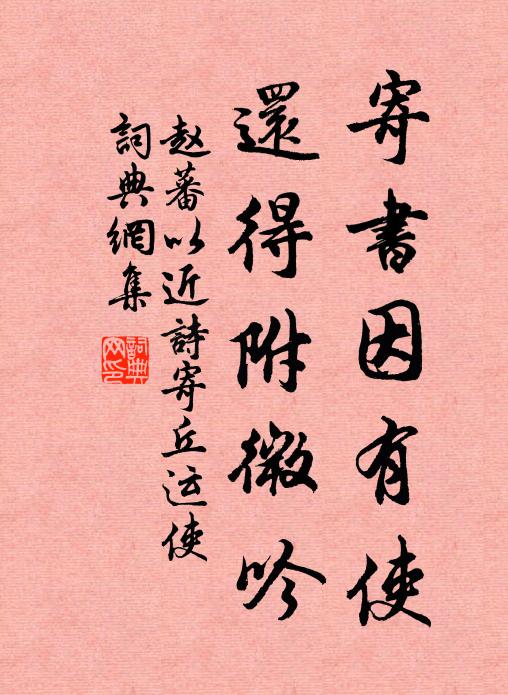 寄書因有使
還得附微吟
赵蕃以近詩寄丘运使
詞典網集
詞典网印